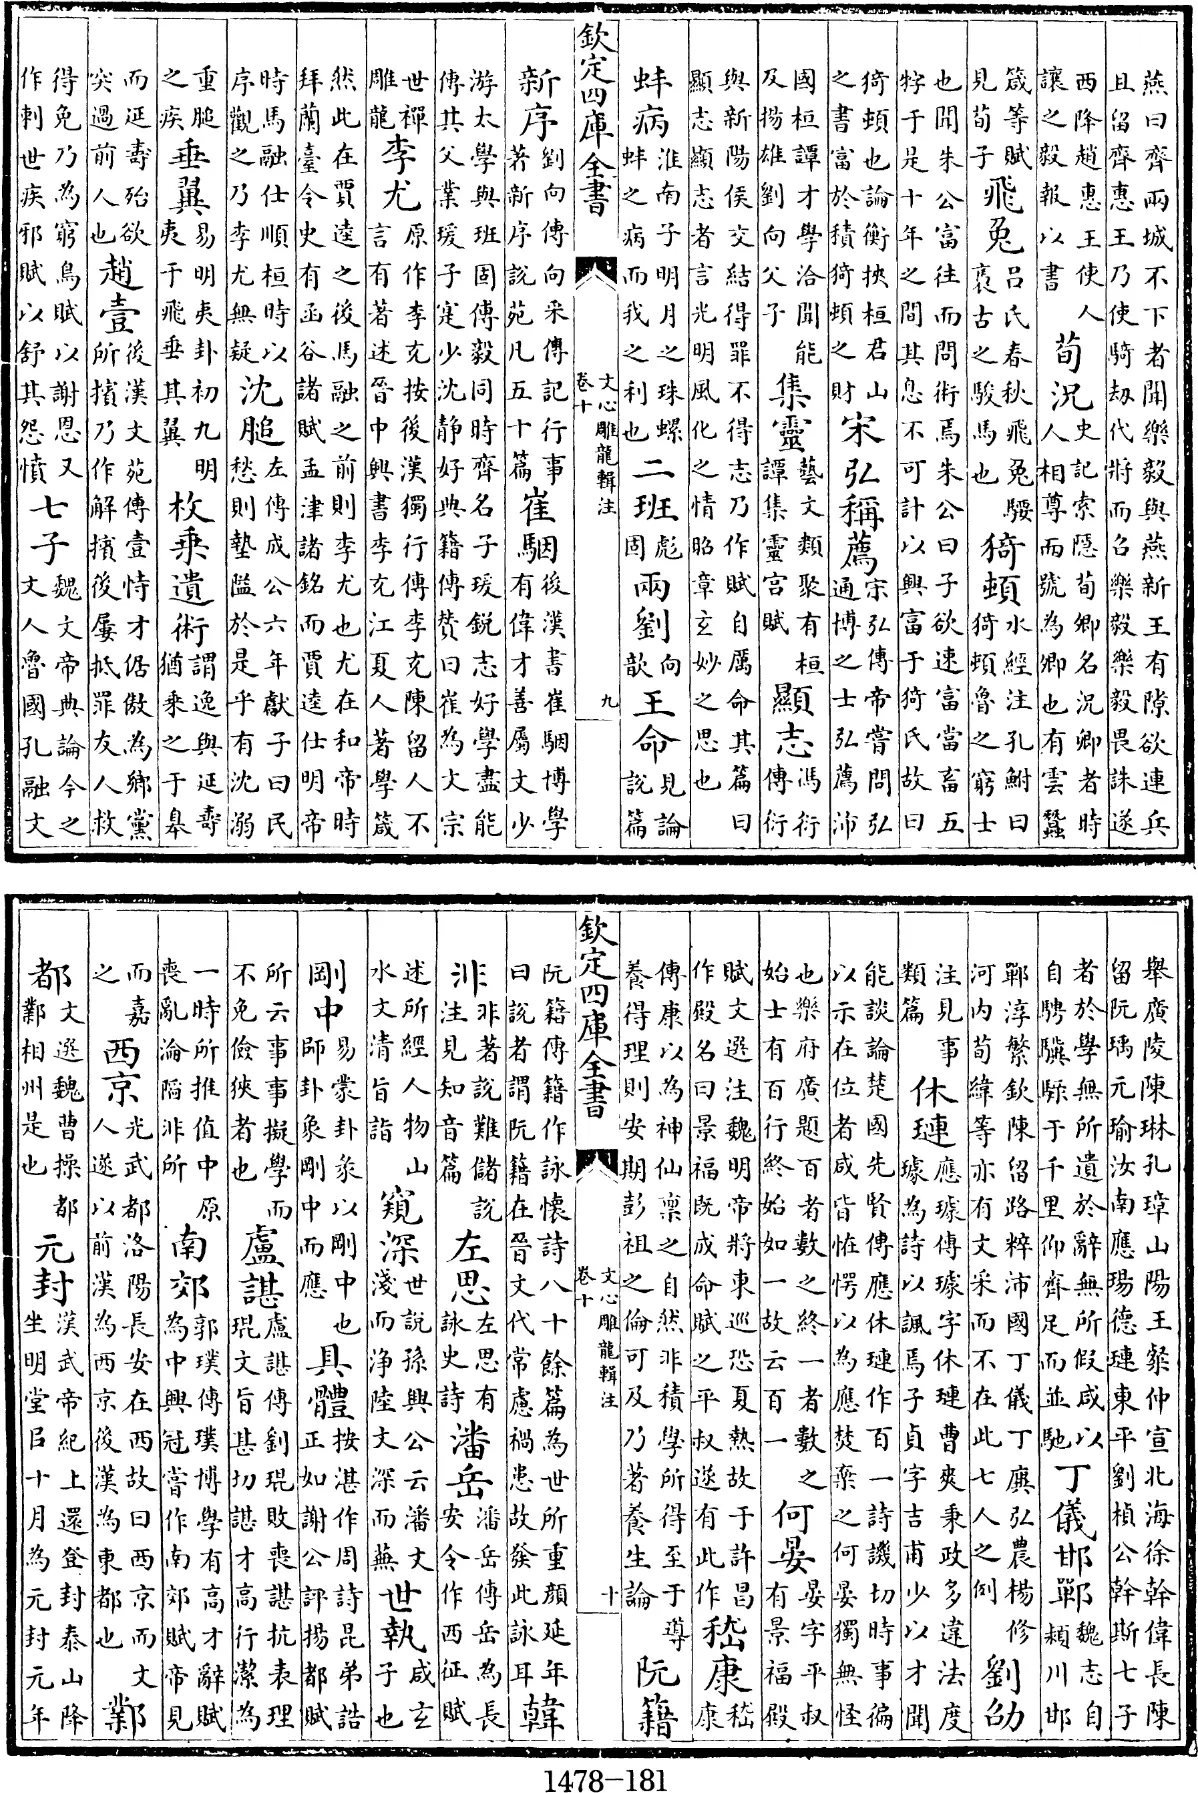 燕曰齊兩城不下者聞樂毅與燕新王有隙欲連兵且留齊惠王乃使騎劫代將而召樂毅樂毅畏誅遂
西降趙惠王使人讓之毅報以書荀況史記索隱荀卿名況卿者時人相尊而號為卿也有雲蠶
箴等賦見荀子飛兔呂氏春秋飛兔騕褭古之駿馬也猗頓水經注孔鮒曰猗頓魯之窮士
也聞朱公富往而問術焉朱公曰子欲速富當畜五牸于是十年之間其息不可計以興富于猗氏故曰
猗頓也論衡挾桓君山之書富於積猗頓之財宋弘稱薦宋弘傳帝嘗問弘通博之士弘薦沛
國桓譚才學洽聞能及揚雄劉向父子集靈藝文類聚有桓譚集靈宮賦顯志馮衍傳衍
與新陽侯交結得罪不得志乃作賦自厲命其篇曰顯志顯志者言光明風化之情昭章玄妙之思也
蚌病淮南子明月之珠螺蚌之病而我之利也二班彪固兩劉向歆王命見論說篇
欽定四庫全書 文心雕龍輯注 卷十 九
新序劉向傳向采傳記行事著新序說苑凡五十篇崔駰後漢書崔駰博學有偉才善屬文少
游太學與班固傳毅同時齊名子瑗鋭志好學盡能傳其父業瑗子寔少沈靜好典籍傳贊曰崔為文宗
世禪雕龍李尤原作李充按後漢獨行傳李充陳留人不言有著述晉中興書李充江夏人著學箴
然此在賈逵之後馬融之前則李尤也尤在和帝時拜蘭臺令史有函谷諸賦孟津諸銘而賈逵仕明帝
時馬融仕順桓時以序觀之乃李尤無疑沈膇左傳成公六年獻子曰民愁則墊隘於是乎有沈溺
重膇之疾垂翼易明夷卦初九明夷于飛垂其翼枚乘遺術謂逸與延壽猶乘之于皋
而延壽殆欲突過前人也趙壹後漢文苑傳壹恃才倨傲為鄉黨所擯乃作解擯後屢抵罪友人救
得免乃為窮鳥賦以謝恩又作刺世疾邪賦以舒其怨憤七子魏文帝典論今之文人魯國孔融文
舉廣陵陳琳孔璋山陽王粲仲宣北海徐幹偉長陳留阮瑀元瑜汝南應瑒德璉東平劉楨公幹斯七子
者於學無所遺於辭無所假咸以自騁驥騄于千里仰齊足而並馳丁儀邯鄲魏志自潁川邯
鄲淳繁欽陳留路粹沛國丁儀丁廙弘農楊修河內荀緯等亦有文采而不在此七人之例劉劭
注見事類篇休璉應璩傳璩字休璉曹爽秉政多違法度璩為詩以諷焉子貞字吉甫少以才聞
能談論楚國先賢傳應休璉作百一詩譏切時事徧以示在位者咸皆恠愕以為應焚棄之何晏獨無怪
也樂府廣題百者數之終一者數之始士有百行終始如一故云百一何晏晏字平叔有景福殿
賦文選注魏明帝將東巡恐夏熱故于許昌作殿名曰景福既成命賦之平叔遂有此作嵇康嵇康
傳康以為神仙稟之自然非積學所得至于導養得理則安期彭祖之倫可及乃著養生論阮籍
欽定四庫全書 文心雕龍輯注 卷十 十
阮籍傳籍作詠懷詩八十餘篇為世所重顏延年曰說者謂阮籍在晉文代常慮禍患故發此詠耳韓
非非著說難儲說注見知音篇左思左思有詠史詩潘岳潘岳傳岳為長安令作西征賦
述所經人物山水文清旨詣窺深世說孫興公云潘文淺而淨陸文深而蕪世執咸玄子也
剛中易蒙卦彖以剛中也師卦象剛中而應具體按湛作周詩昆弟誥正如謝公評揚都賦
所云事事擬學而不免儉狹者也盧諶盧諶傳劉琨敗喪諶抗表理琨文旨甚切諶才高行潔為
一時所推值中原喪亂淪陷非所南郊郭璞傳璞博學有高才辭賦為中興冠嘗作南郊賦帝見
而嘉之西京光武都洛陽長安在西故曰西京而文人遂以前漢為西京後漢為東都也鄴
都文選魏曹操都鄴相州是也元封漢武帝紀上還登封泰山降坐明堂㠯十月為元封元年
1478-181